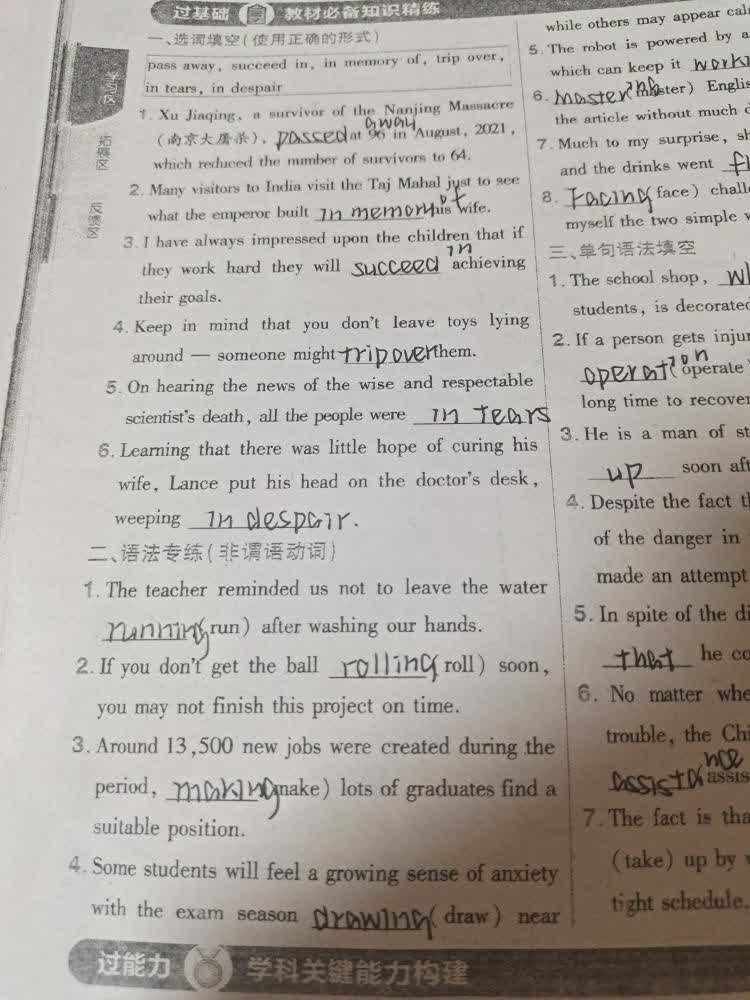 过基础 教材必备知识精练
一、选词填空(使用正确的形式)
pass away, succeed in, in memory of, trip over,
in tears, in despair
1. Xu Jiaqing, a survivor of the Nanjing Massacre
(南京大屠杀), passed away at 96 in August, 2021,
which reduced the number of survivors to 64.
2. Many visitors to India visit the Taj Mahal just to see
what the emperor built in memory of his wife.
3. I have always impressed upon the children that if
they work hard they will succeed in achieving
their goals.
4. Keep in mind that you don't leave toys lying
around — someone might trip over them.
5. On hearing the news of the wise and respectable
scientist's death, all the people were in tears
6. Learning that there was little hope of curing his
wife, Lance put his head on the doctor's desk,
weeping in despair.
二、语法专练(非谓语动词)
1. The teacher reminded us not to leave the water
running (run) after washing our hands.
2. If you don't get the ball rolling (roll) soon,
you may not finish this project on time.
3. Around 13,500 new jobs were created during the
period, making (make) lots of graduates find a
suitable position.
4. Some students will feel a growing sense of anxiety
with the exam season drawing (draw) near
while others may appear
5. The robot is powered by a
which can keep it
6. Mastering (master)
the article without much
7. Much to my surprise,
and the drinks went
8. Facing (face)
myself the two simple
三、单句语法填空
1. The school shop,
students, is decorated
2. If a person gets
operation (operate
long time to recover
3. He is a man of
up soon
4. Despite the fact
of the danger in
made an attempt
5. In spite of the
that he
6. No matter
trouble, the
assistance
7. The fact is
(take) up by
tight schedule.
过能力 学科关键能力构建
学习区
拓展区
反馈区